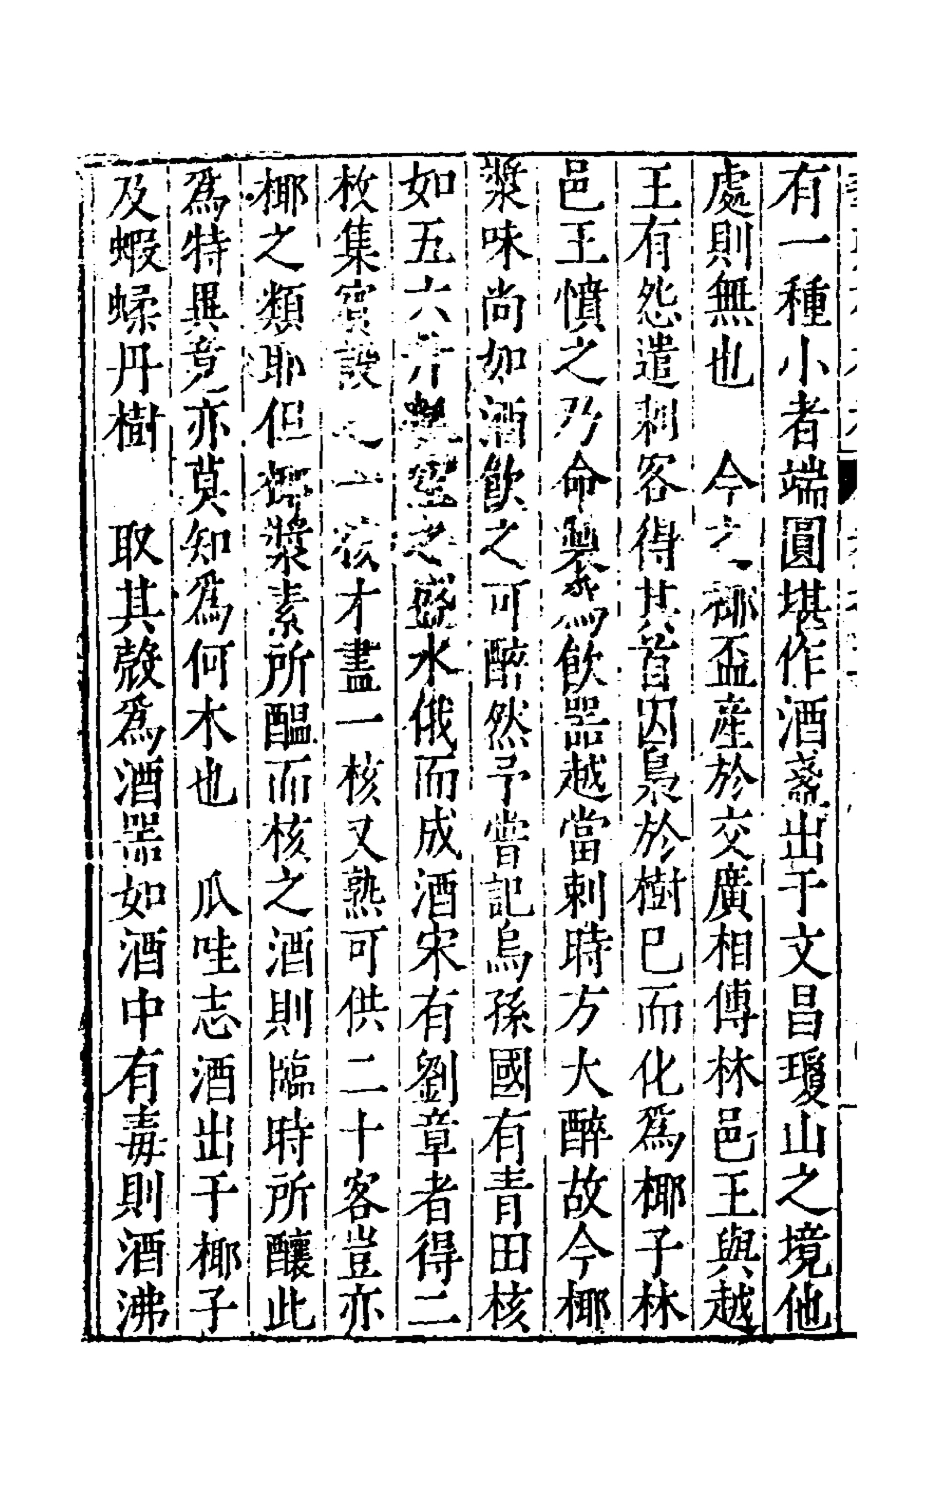 有一種小者端圓堪作酒盞出于文昌瓊山之境他
處則無也　今之椰盃產於交廣相傳林邑王與越
王有怨遣刺客得其首囚梟於樹巳而化爲椰子林
邑王憤之乃命製爲飮器越當刺時方大醉故今椰
漿味尚如酒飮之可醉然予嘗記烏孫國有青田核
如五六斤瓠空之盛水俄而成酒宋有劉章者得二
枚集賓設之一核才盡一核又熟可供二十客豈亦
椰之類耶但椰漿素所醞而核之酒則臨時所釀此
爲特異竟亦莫知爲何木也　瓜哇志酒出于椰子
及蝦蝚丹樹　取其殼爲酒器如酒中有毒則酒沸